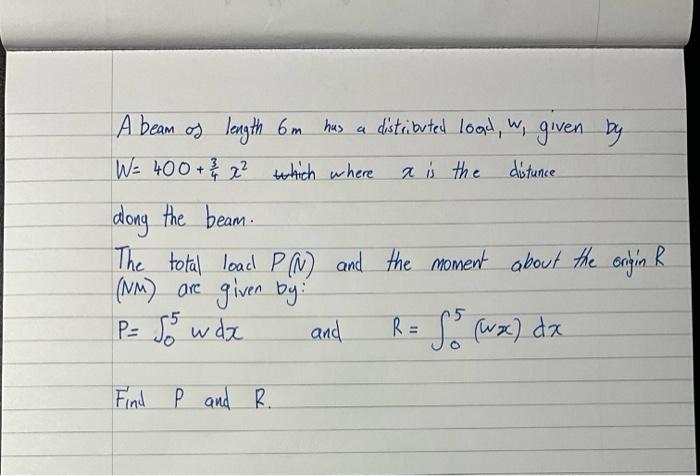 A beam of length 6m has a distributed load, w, given by
W= 400 + 3/4 x² which where x is the distance
along the beam.
The total load P(N) and the moment about the origin R
(NM) are given by:
P= ∫₀⁵ w dx and R= ∫₀⁵ (wx) dx
Find P and R.